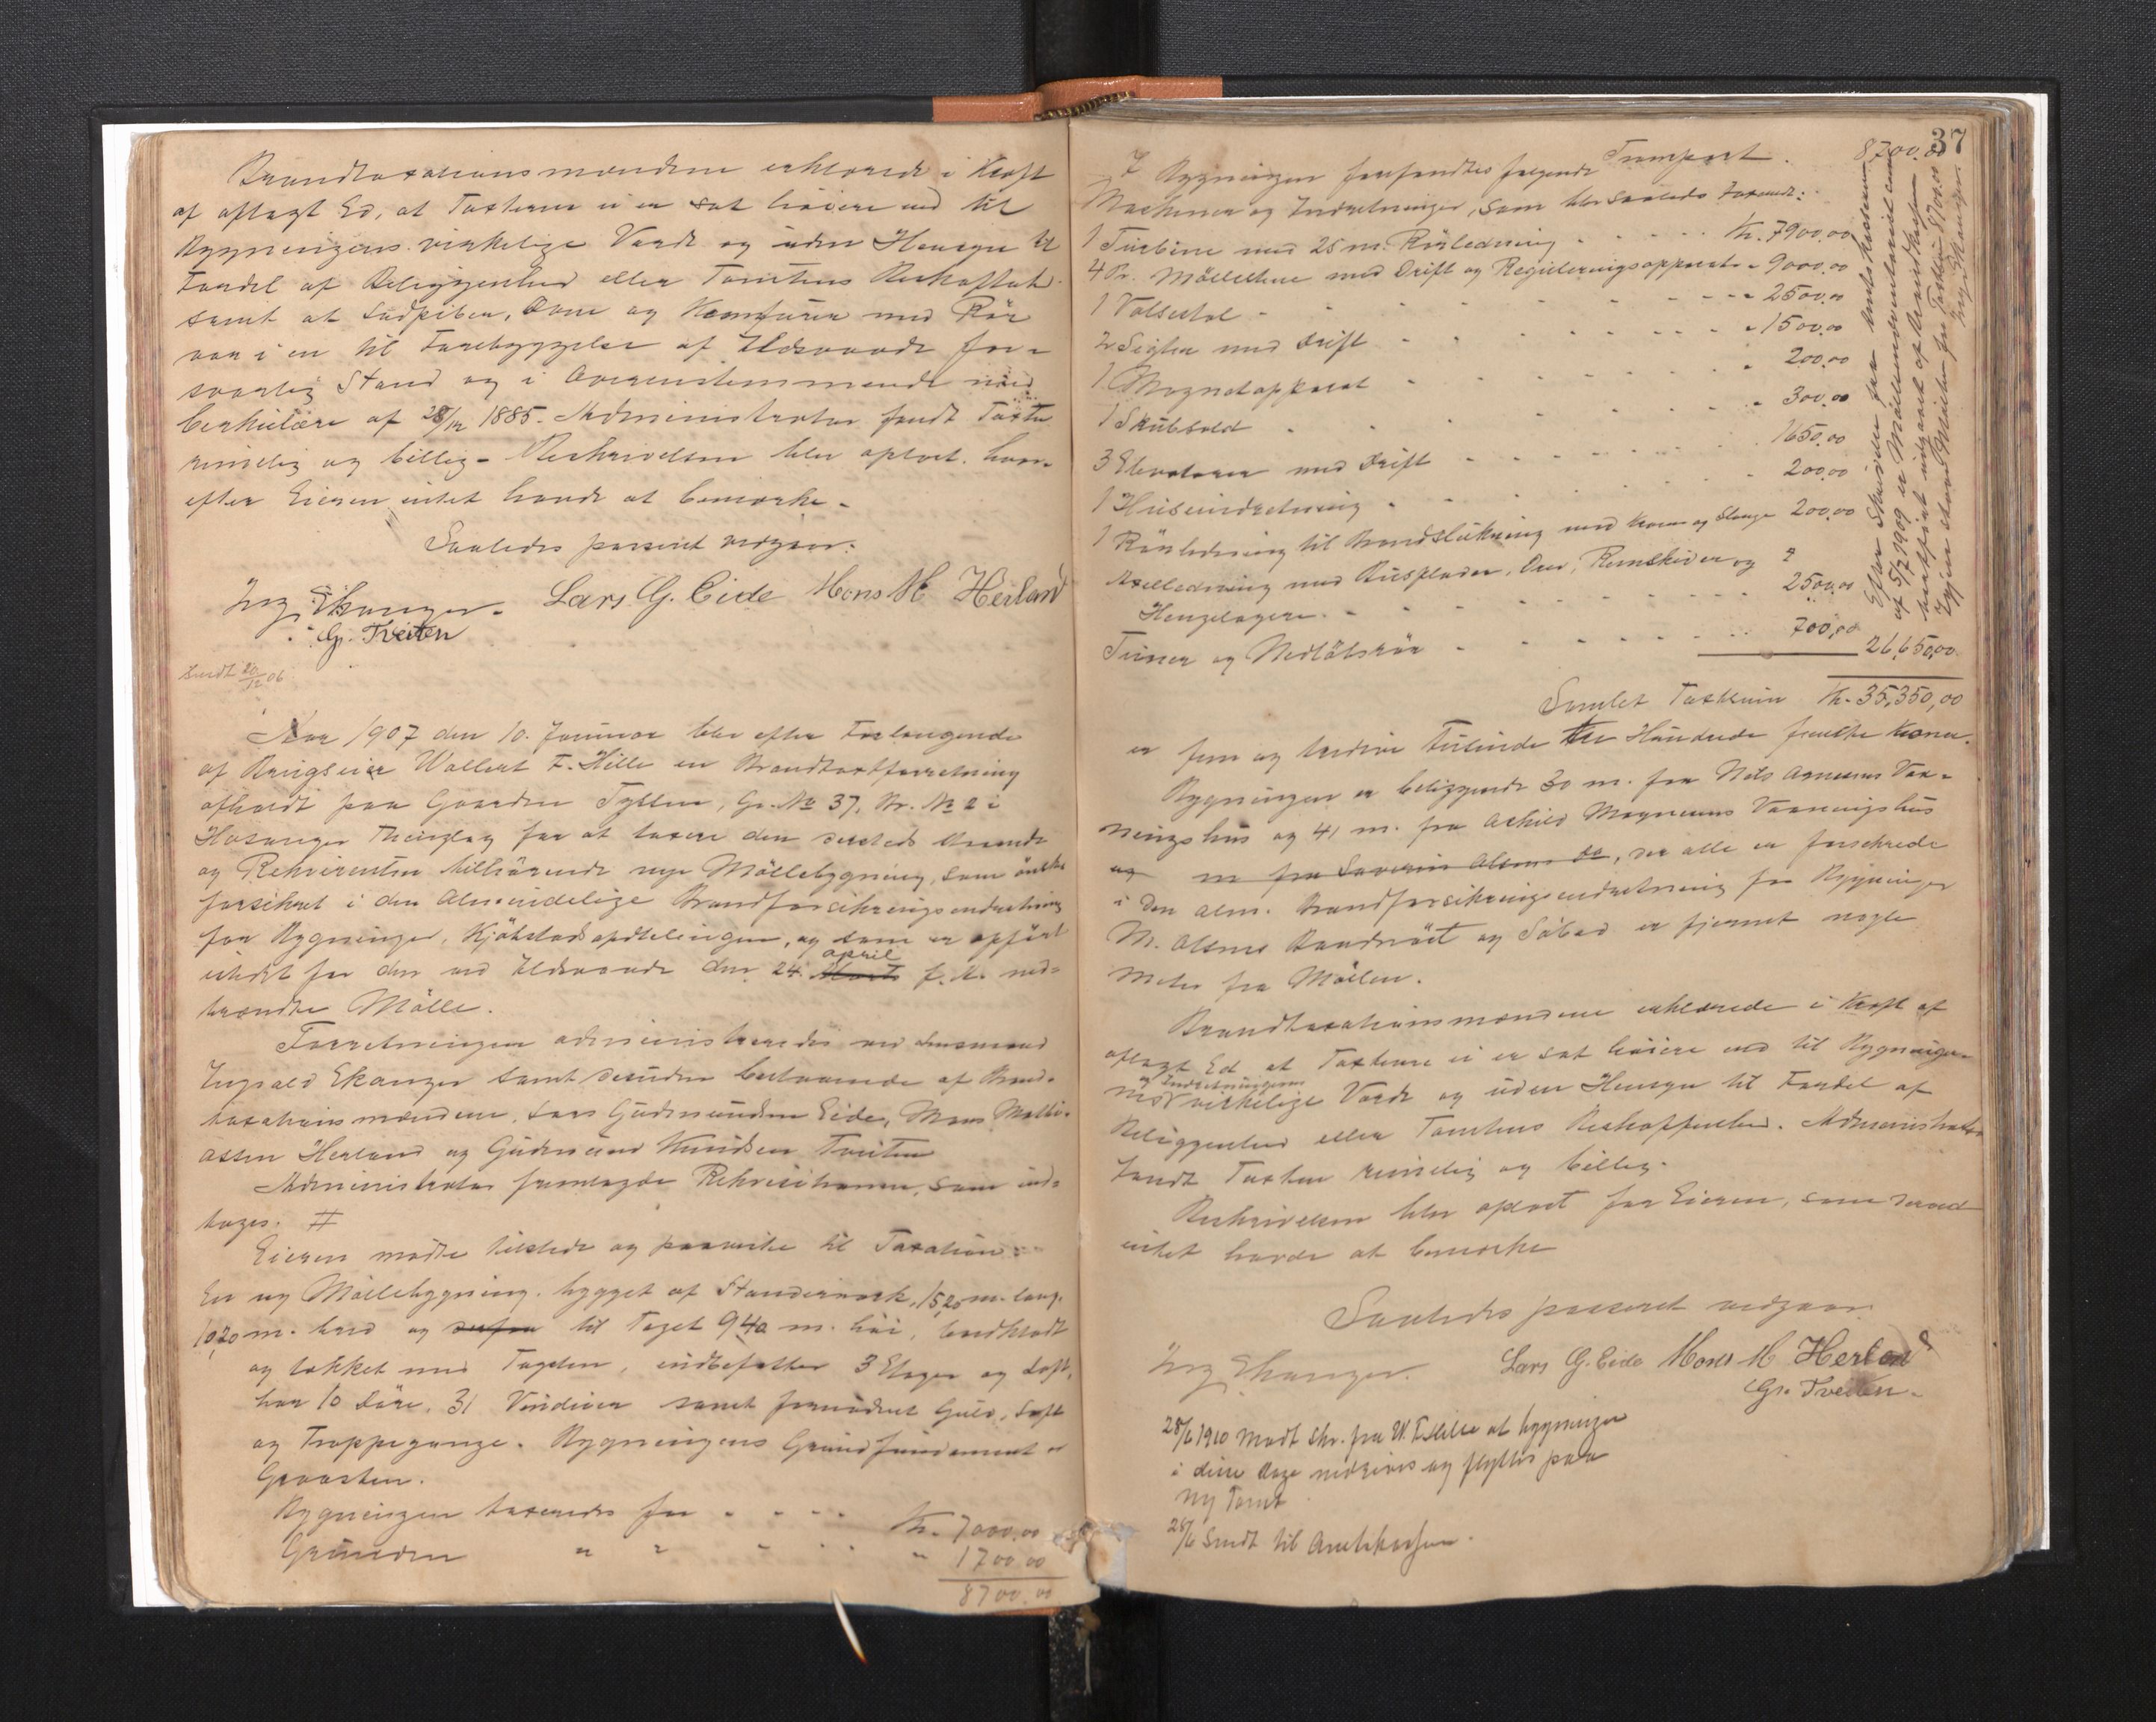 Brandtaxationsmændene erklærede i Kraft
af aflagt Ed, at Taxterne ei er sat høiere end til
Bygningens virkelige Værdi og uden Hensyn til
Fordel af Beliggenhed eller Tomtens Beskaffenhed
samt at Ludpiber, Ovne og Komfurer med Rør
var i en til Forebyggelse af Ildsvaade for-
svarlig Stand og i Overensstemmende med
Cerkulære af 28/12 1885. Administrator fandt Taxten
rimelig og billig. Beskrivelsen blev oplæst, hvor-
efter Eieren intet havde at bemærke.
Saaledes passeret vedgaar:
Ing. Ekanger. Lars G. Eide Mons M Herland
G. Tveiten
Sendt 20/12 06.
Aar 1907 den 10. Januar blev efter Forlangende
af Brugseier Wollert F. Hille en Brandtaxtforretning
afholdt paa Gaarden Tyssen, Gr. No 37, Br. No 2 i
Hosanger Thinglag for at taxere den sammesteds staaende
og Rekvirenten tilhørende nye Møllebygning, som ønskes
forsikret i den Almindelige Brandforsikringsindretning
for Bygninger, Kjøbstadsafdelingen, og som er opført
istedet for den ved Ildsvaade den 24. Marts april f. A. ned-
brændte Mølle.
Forretningen administreredes ved Lensmand
Ingvald Ekanger samt desuden bestaaende af Brand-
taxationsmændene Lars Gudmundsen Eide, Mons Mathi-
assen Herland og Gudmund Knudsen Tveiten
Administrator fremlagde Rekvisitionen, som ind-
tages. #
Eieren mødte tilstede og paaviste til Taxation:
En ny Møllebygning, bygget af Standerværk, 15,20 m. lang,
10,20 m. bred og til Taget 9,40 m. høi, bordklædt
og tækket med Tagsten, indbefatter 3 Etager og Loft,
har 10 Døre, 31 Vinduer samt fornødent Gulv, Loft
og Trappegange. Bygningens Grundfundament er
Graasten.
Bygningen taxeredes for . . . . Kr. 7000,00
Grunden " " . . . " 1700,00
8700,00
37
Transport. 8700,00
I Bygningen forefandtes følgende
Maskiner og Indretninger, som blev saaledes taxeret:
1 Turbine med 25 m. Rørledning . . . . Kr. 7900,00
4 Pr. Møllestene med Drift og Reguleringsapparat " 9000,00
1 Valsestol " 2500,00
2 Sigter med Drift " 1500,00
1 Magnetapparat " 200,00
1 Skubsold " 300,00
3 Elevatorer med Drift 1650,00
1 Heiseindretning 200,00
1 Rørledning til Brandslukning med Kran og Slange 200,00
Axelledning med Busplader, Remskiver og
Hengelagere 2500,00
Tuner og Nedløbsrør 700,00
26,650,00
Samlet Taxtsum Kr. 35,350,00
er fem og tredive Tusinde tre Hundrede femti Kroner.
Bygningen er beliggende 30 m. fra Nils Vaa-
ningshus og 41 m. fra Askild Magnesens Vaaningshus
og m fra Severin Olsens do, der alle er forsikrede
i den alm. Brandforsikringsindretning for Bygninger
M. Olsens Baadnøst og Søbod er fjernet nogle
Meter fra Møllen.
Brandtaxationsmændene erklærede i Kraft af
aflagt Ed at Taxterne ei er sat høiere end til Bygningens
og Indretningens
virkelige Værdi og uden Hensyn til Fordel af
Beliggenhed eller Tomtens Beskaffenhed. Administrator
fandt Taxten rimelig og billig.
Beskrivelsen blev oplæst for Eieren, som derved
intet havde at bemærke
Saaledes passeret vedgaar:
Ing. Ekanger. Lars G. Eide Mons M Herland
G. Tveiten.
28/6 1910 Modt Skr. fra W. F. Hille at bygningen
i disse dage nedrives og flyttes paa
ny Tomt
28/6 Sendt til Amtskassen.
Efter Skrivelse fra Amtskassen
af 5/7 1909 er Mølleindventariet
udgaaet af Brandkassen
Igjen staar Møllen for Taxten 8700,00
Ing. Ekanger